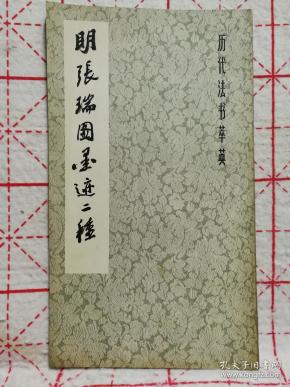 历代法书萃英
明張瑞圖墨迹二種
孔夫子旧书网